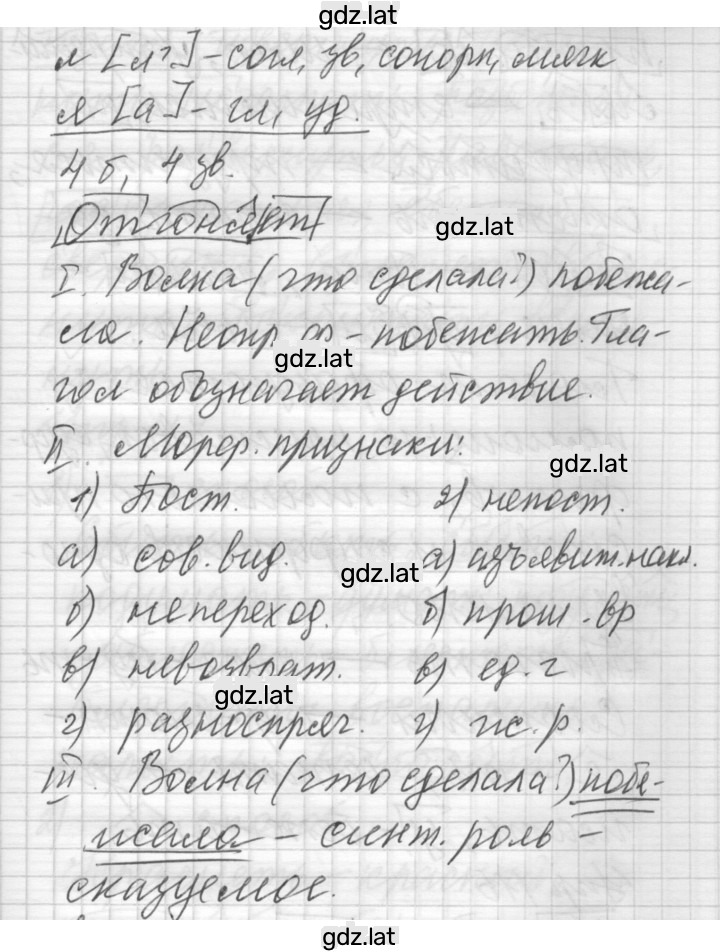 gdz.lat
л [л'] - согл, зв, сонорн, мягк
я [а] - гл, уд.
4 б, 4 зв.
Отгоняет
gdz.lat
I. Волна (что сделала?) побежа-
ла. Неопр. ф - побежать. Гла-
gdz.lat
гол обозначает действие.
II. Морф. признаки:
gdz.lat
1) Пост. 2) непост.
а) сов. вид. а) изъявит. накл.
gdz.lat
б) непереход. б) прош. вр
в) невозврат. в) ед. ч
gdz.lat
г) разноспряг. г) ж. р.
III. Волна (что сделала?) побе-
жала - синт. роль -
сказуемое.
gdz.lat